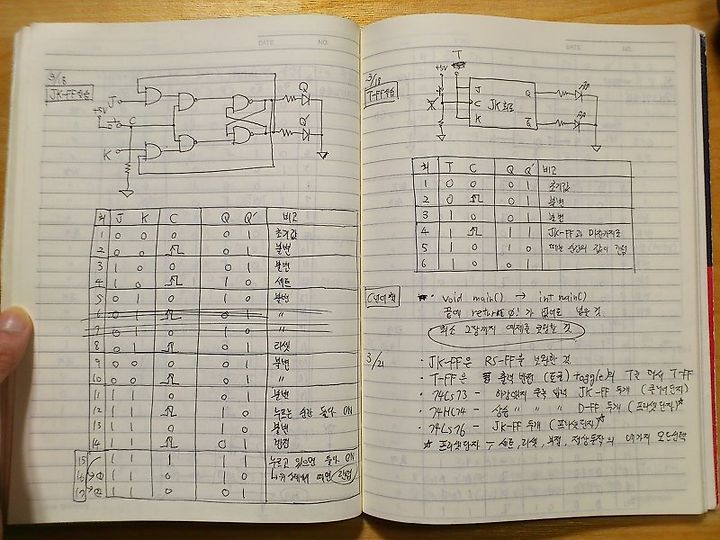 DATE NO.
3/18
JK-FF실습
J
+5V
C
K
Q
Q'
회 J K C Q Q' 비고
1 0 0 0 0 1 초기값
2 0 0 0 1 불변
3 1 0 0 0 1 불변
4 1 0 1 0 세트
5 0 1 0 1 0 불변
6 0 1 0 1 "
7 0 1 0 0 1 "
8 0 1 0 1 리셋
9 0 0 0 0 1 불변
10 0 0 0 1 "
11 1 1 0 0 1 불변
12 1 1 1 0 누르는 순간 둘다 ON
13 1 1 0 1 0 불변
14 1 1 0 1
15 1 1 1 1 1 누르고 있으면 둘다 ON
16 1 1 0 1 0
17 1 1 0 0 1
DATE NO.
3/18
T-FF실습
T
+5V
J
C JK회로
K
Q
Q
회 T C Q Q' 비고
1 0 0 0 1 초기값
2 0 0 1 불변
3 1 0 0 1 불변
4 1 1 1 JK-FF과 마찬가지로
5 1 0 1 0 떼는 순간의 값이
6 1 0 0 1
void main() → int main()
끝에 return 0; 가 없어도 넣을 것
예제를 할 것
3/21
· JK-FF은 RS-FF을 보완한 것
· T-FF은 출력 반전 (토글) toggle의 T를 따서 T-FF
· 74LS73 - 하강엣지 클럭 입력 JK-FF 두개 (클리어단자)
· 74HC74 - 상승 " " " D-FF 두개 (프리셋단자)☆
· 74LS76 - JK-FF 두개 (프리셋단자)☆
☆ 프리셋단자 → 세트, 리셋, 부정, 정상동작의 네가지 모드선택